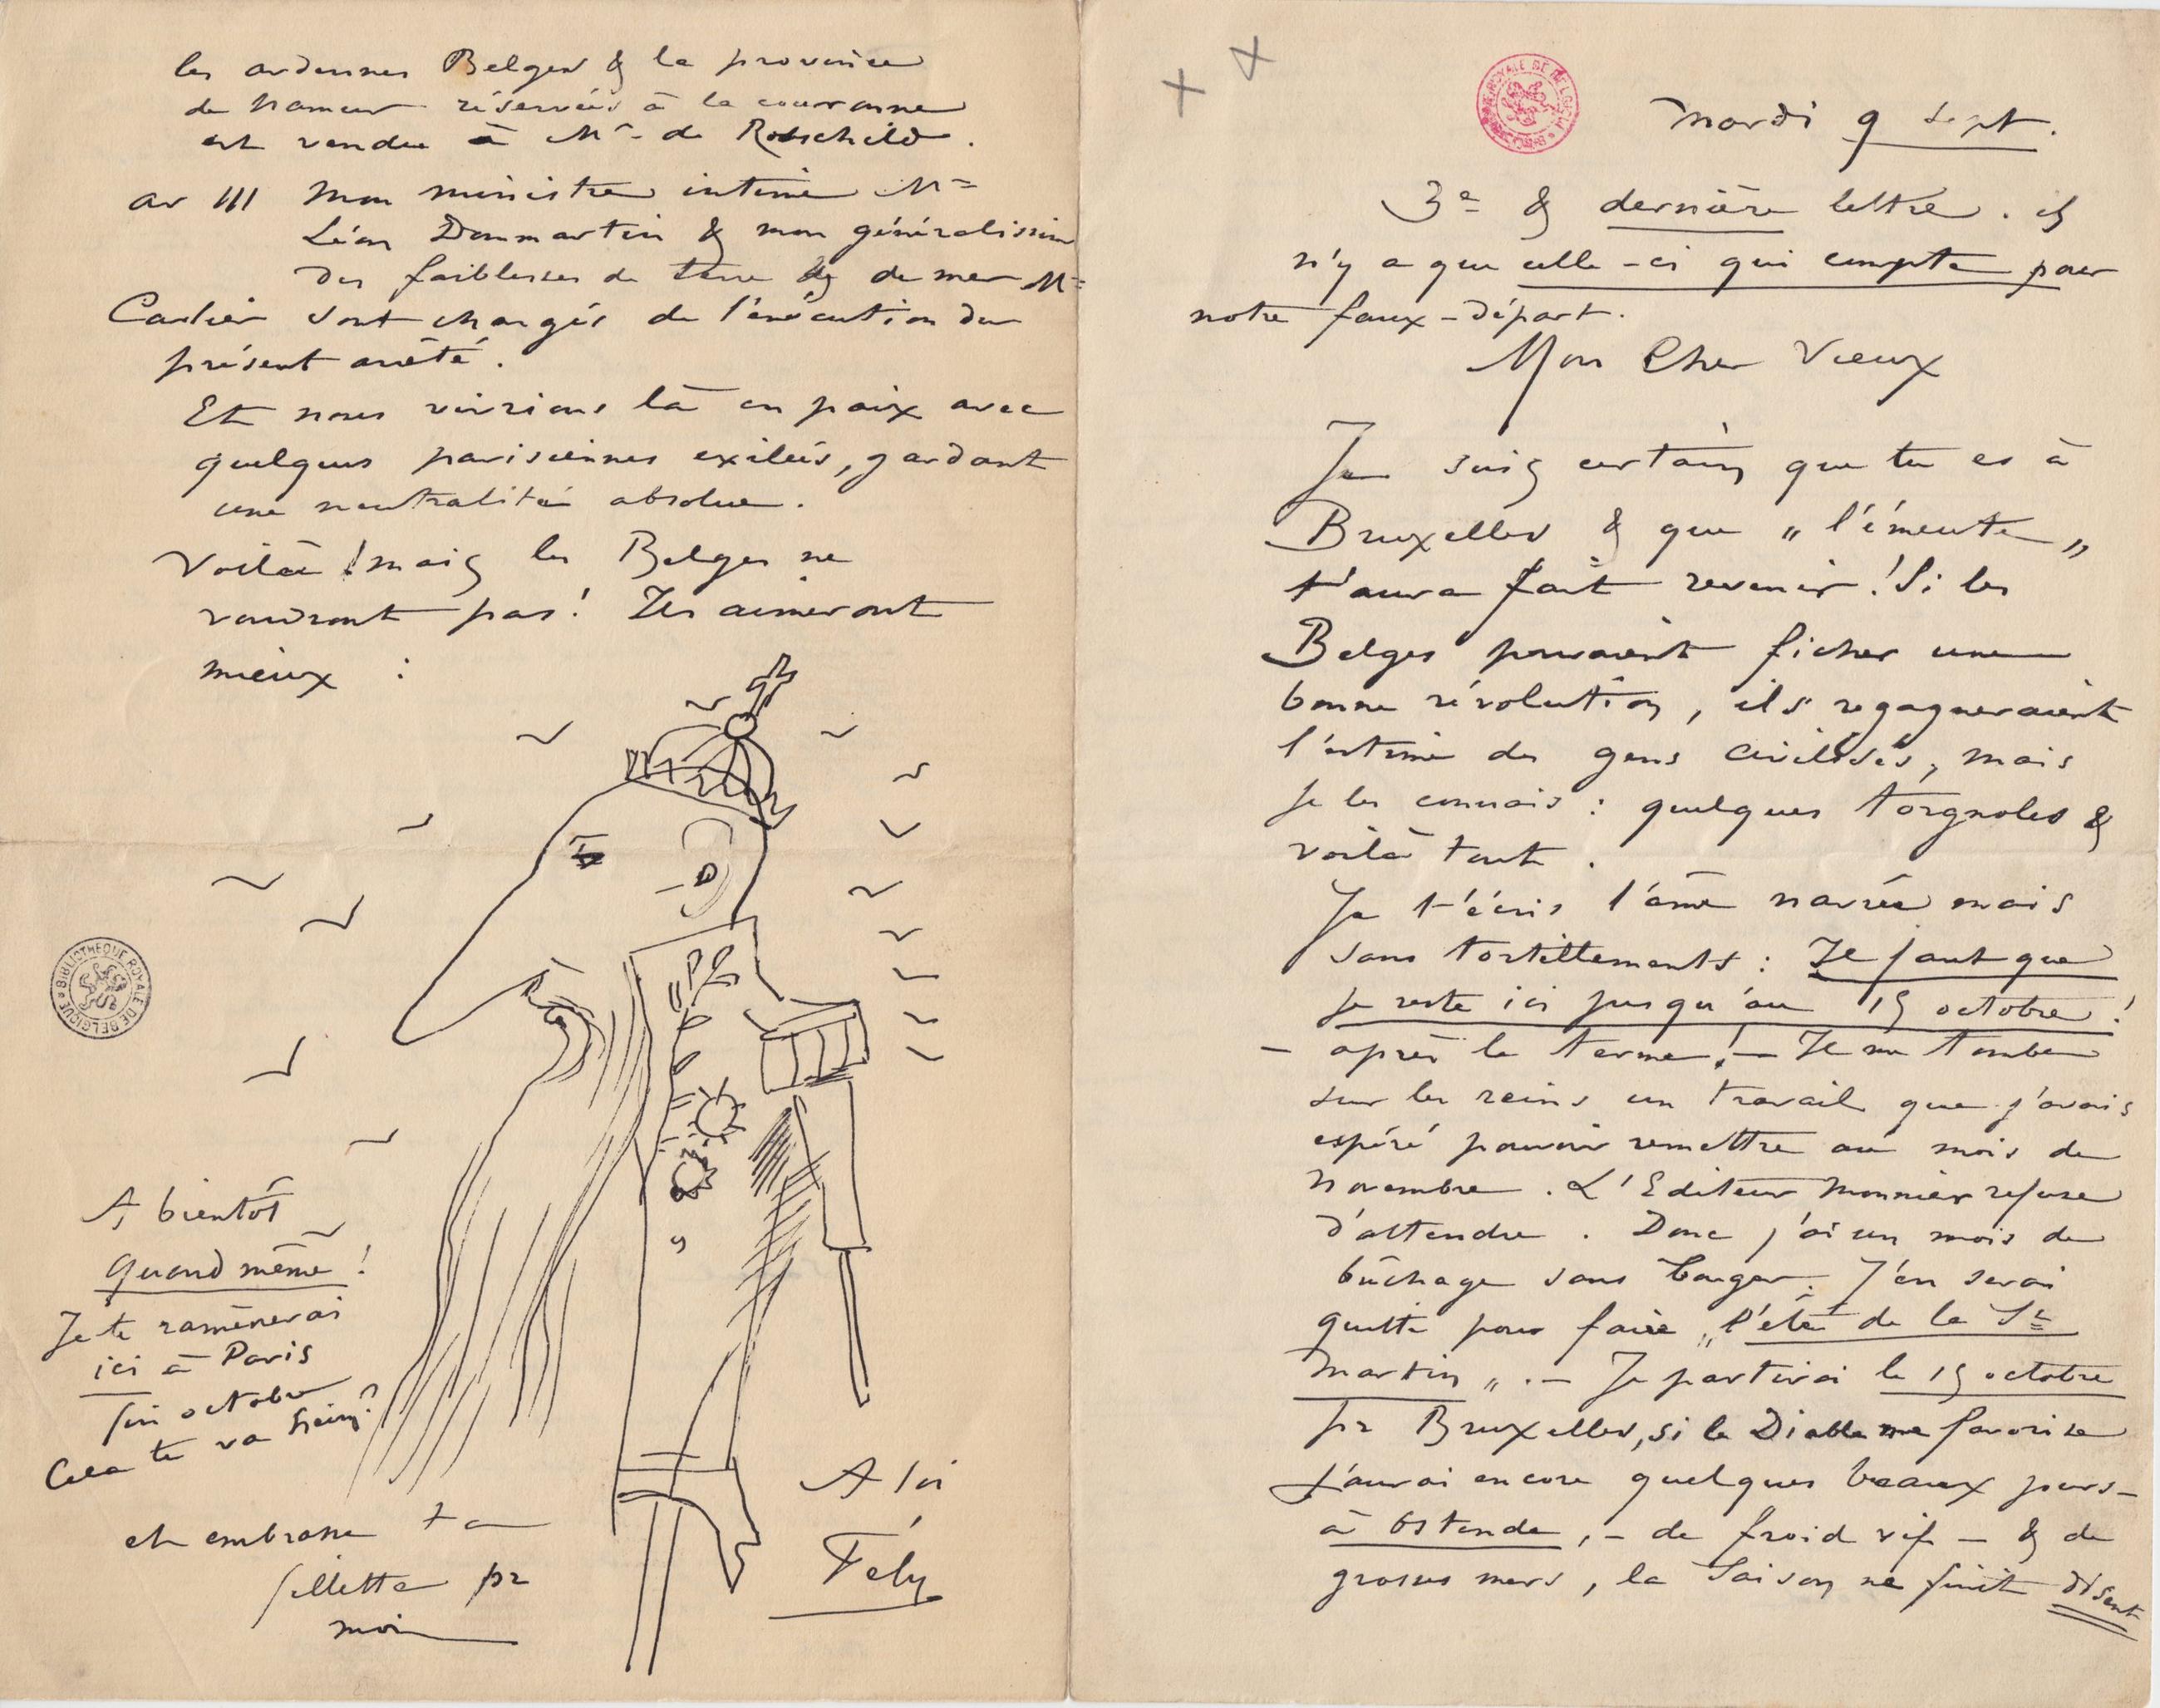 Mardi 9 Sept.
3e & dernière lettre. il
n'y a que celle-ci qui compte pour
notre faux-départ.
Mon Cher Vieux
Je suis certain que tu es à
Bruxelles & que „l'émeute„
t'aura fait revenir! Si les
Belges pouvaient ficher une
bonne révolution, ils regagneraient
l'estime des gens civilisés, mais
je les connais : quelques torgnoles &
voilà tout.
Je t'écris l'âme navrée mais
sans tortillements : Il faut que
je reste ici jusqu'au 15 octobre!
– après le terme! – Il me tombe
sur les reins un travail que j'avais
espéré pouvoir remettre au mois de
Novembre. L'Editeur Monnier refuse
d'attendre. Donc j'ai un mois de
bûchage sans bouger. J'en serai
quitte pour faire „l'été de la St
Martin„. – Je partirai le 15 octobre
pr Bruxelles, si le Diable me favorise
j'aurai encore quelques beaux jours –
à Ostende, – de froid vif – & de
grosses mers, la Saison ne finit disent
les ardennes Belges & la province
de Namur réservées à la couronne
est vendue à Mr de Rotschild.
ar III Mon ministre intime Mr
Léon Dommartin & mon généralissime
des faiblesses de terre & de mer Mr
Carlier sont chargés de l'exécution du
présent arrêté.
Et nous vivrions là en paix avec
quelques parisiennes exilées, gardant
une neutralité absolue.
Voilà! mais les Belges ne
voudront pas! Ils aimeront
mieux :
A bientôt
quand même!
Je te ramènerai
ici à Paris
fin octobre
Cela te va hein?
et embrasse ta
fillette pr
moi
A toi
Fély
BIBLIOTHEQUE ROYALE DE BELGIQUE